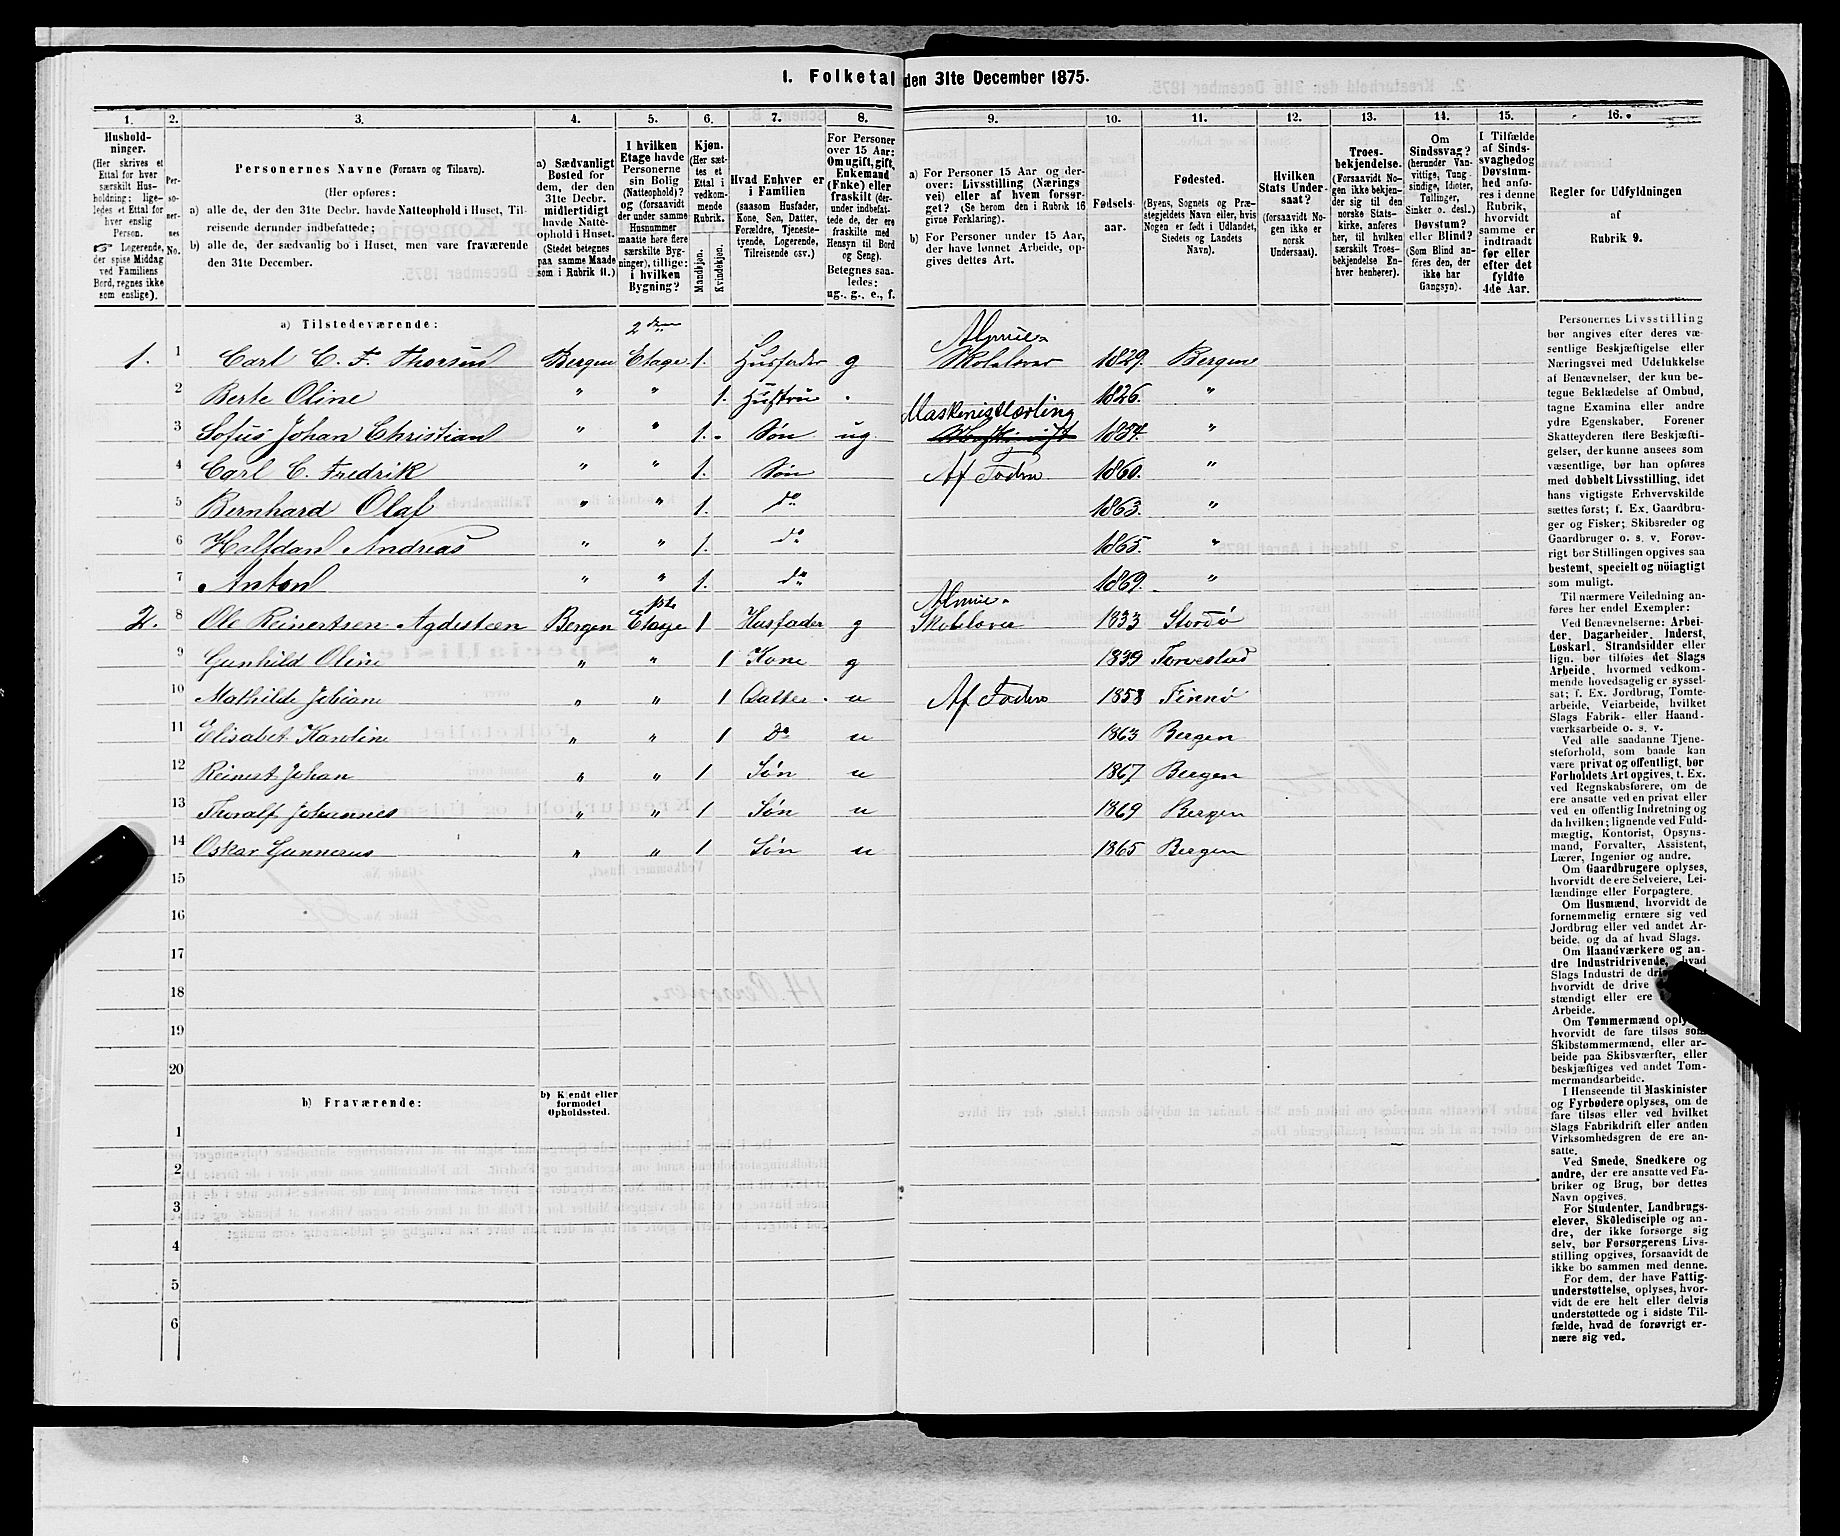 1. Folketal den 31te December 1875.
1. 2. 3. 4. 5. 6. 7. 8. 9. 10. 11. 12. 13. 14. 15. 16.
Hushold-
ninger.
(Her skrives et
Ettal for hver
særskilt Hus-
holdning; lige-
ledes et Ettal for
hver enslig
Person.
☞ Logerende,
der spise Middag
ved Familiens
Bord, regnes ikke
som enslige).
Per-
so-
ner-
nes
No.
Personernes Navne (Fornavn og Tilnavn).
(Her opføres:
a) alle de, der den 31te Decbr. havde Natteophold i Huset, Til-
reisende derunder indbefattede;
b) alle de, der sædvanlig bo i Huset, men vare fraværende
den 31te December.
a) Sædvanligt
Bosted for
dem, der den
31te Decbr.
midlertidigt
havde Natte-
ophold i Huset.
(Stedet betegnes
paa samme Maade
som i Rubrik 11.)
I hvilken
Etage havde
Personerne
sin Bolig
(Natteophold)?
og (forsaavidt
der under samme
Husnummer
maatte høre flere
særskilte Byg-
ninger), tillige:
i hvilken
Bygning?
Kjøn.
(Her sæt-
tes et
Ettal i
vedkom-
mende
Rubrik.
Mandkjøn.
Kvindekjøn.
Hvad Enhver er
i Familien
(saasom Husfader,
Kone, Søn, Datter,
Forældre, Tjeneste-
tyende, Logerende,
Tilreisende osv.)
For Personer
over 15 Aar:
Om ugift, gift,
Enkemand
(Enke) eller
fraskilt (der-
under indbefat-
tede de, der ere
fraskilte med
Hensyn til Bord
og Seng).
Betegnes saa-
ledes:
ug., g., e., f.
a) For Personer 15 Aar og der-
over: Livsstilling (Nærings
vei) eller af hvem forsør-
get? (Se herom den i Rubrik 16
givne Forklaring).
b) For Personer under 15 Aar,
der have lønnet Arbeide, op-
gives dettes Art.
Fødsels-
aar.
Fødested.
(Byens, Sognets og Præ-
stegjeldets Navn eller, hvis
Nogen er født i Udlandet,
Stedets og Landets
Navn).
Hvilken
Stats Under-
saat?
(forsaavidt No-
gen ikke er
norsk
Undersaat).
Troes-
bekjendelse.
(Forsaavidt No-
gen ikke bekjen-
der sig til den
norske Stats-
kirke, anføres
her, til hvilken
særskilt Troes-
bekjendelse En-
hver henhører).
Om
Sindssvag?
(herunder Van-
vittige, Tung
sindige, Idioter,
Tullinger,
Sinker o. desl.)
Døvstum?
eller Blind?
(Som Blind an-
føres den, der
ikke har
Gangsyn).
I Tilfælde
af Sinds-
svaghed og
Døvstum-
hed anfø-
res i denne
Rubrik,
hvorvidt
samme er
indtraadt
før eller
efter det
fyldte
4de Aar.
Regler for Udfyldningen
af
Rubrik 9.
a) Tilstedeværende:
2den Almue-
1. 1 Carl C. F. Thorsen Bergen Etage 1. Husfader g Skolelærer 1829. Bergen
2 Berte Oline " " 1. Hustru 1826. "
Maskinistlærling
3 Sofus Johan Christian " " 1. Søn ug. 1854. "
4 Carl C. Fredrik " " 1. Søn Af Faderen 1860. "
5 Bernhard Olaf " " 1. do 1863. "
6 Halfdan Andreas " " 1. do 1865. "
7 Anton " " 1. do 1869. "
1ste Almue-
2. 8 Ole Reinertsen Agdesteen Bergen Etage 1 Husfader g Skolelærer 1833 Stordø
9 Gunhild Oline " " 1 Kone g 1839 Torvestad
10 Mathilde Jobiane " " 1 Datter u Af Faderen 1858 Finnø
11 Elisabet Karoline " " 1 Do u 1863 Bergen
12 Reinert Johan " " 1 Søn u 1867 Bergen
13 Thoralf Johannes " " 1 Søn u 1869 Bergen
14 Oskar Gunnerus " " 1 Søn u 1865 Bergen
15
16
17
18
19
20
b) Fraværende:
b) Kjendt eller
formodet
Opholdssted.
1
2
3
4
5
6
Personernes Livsstilling
bør angives efter deres væ-
sentlige Beskjæftigelse eller
Næringsvei med Udelukkelse
af Benævnelser, der kun be-
tegne Beklædelse af Ombud,
tagne Examina eller andre
ydre Egenskaber. Forener
Skatteyderen flere Beskjæfti-
gelser, der kunne ansees som
væsentlige, bør han opføres
med dobbelt Livsstilling, idet
hans vigtigste Erhvervskilde
sættes først; f. Ex. Gaardbru-
ger og Fisker; Skibsreder og
Gaardbruger o. s. v. Forøv-
rigt bør Stillingen opgives saa
bestemt, specielt og nøiagtigt
som muligt.
Til nærmere Veiledning an-
føres her endel Exempler:
Ved Benævnelserne: Arbei-
der, Dagarbeider, Inderst,
Løskarl, Strandsidder eller
lign. bør tilføies det Slags
Arbeide, hvormed vedkom-
mende hovedsagelig er syssel-
sat; f. Ex. Jordbrug, Tomte-
arbeide, Veiarbeide, hvilket
Slags Fabrik- eller Haand-
værksarbeide o. s. v.
Ved alle saadanne Tjene-
steforhold, som baade kan
være privat og offentligt, bør
Forholdets Art opgives, t. Ex.
ved Regnskabsførere, om de
ere ansatte ved en privat eller
ved en offentlig Indretning og
da hvilken; lignende ved Fuld-
mægtig, Kontorist, Opsyns-
mand, Forvalter, Assistent,
Lærer, Ingeniør og andre.
Om Gaardbrugere oplyses,
hvorvidt de ere Selveiere, Lei-
lændinge eller Forpagtere.
Om Husmænd, hvorvidt de
fornemmelig ernære sig ved
Jordbrug eller ved andet Ar-
beide, og da af hvad Slags.
Om Haandværkere og an-
dre Industridrivende, hvad
Slags Industri de
hvorvidt de drive
stændigt eller ere
Arbeide.
Om Tømmermænd
hvorvidt de fare tilsøs som
Skibstømmermænd, eller ar-
beide paa Skibsværfter, eller
beskjæftiges ved andet Tøm-
mermandsarbeide.
I Henseende til Maskinister
og Fyrbødere oplyses, om de
fare tilsøs eller ved hvilket
Slags Fabrikdrift eller anden
Virksomhedsgren de ere an-
satte.
Ved Smede, Snedkere og
andre, der ere ansatte ved Fa-
briker og Brug, bør dettes
Navn opgives.
For Studenter, Landbrugs-
elever, Skoledisciple og an-
dre, der ikke forsørge sig
selv, bør Forsørgerens Livs-
stilling opgives, forsaavidt de
ikke bo sammen med denne.
For dem, der have Fattig-
understøttelse, oplyses, hvor-
vidt de ere helt eller delvis
understøttede og i sidste Til-
fælde, hvad de forøvrigt er-
nære sig ved.